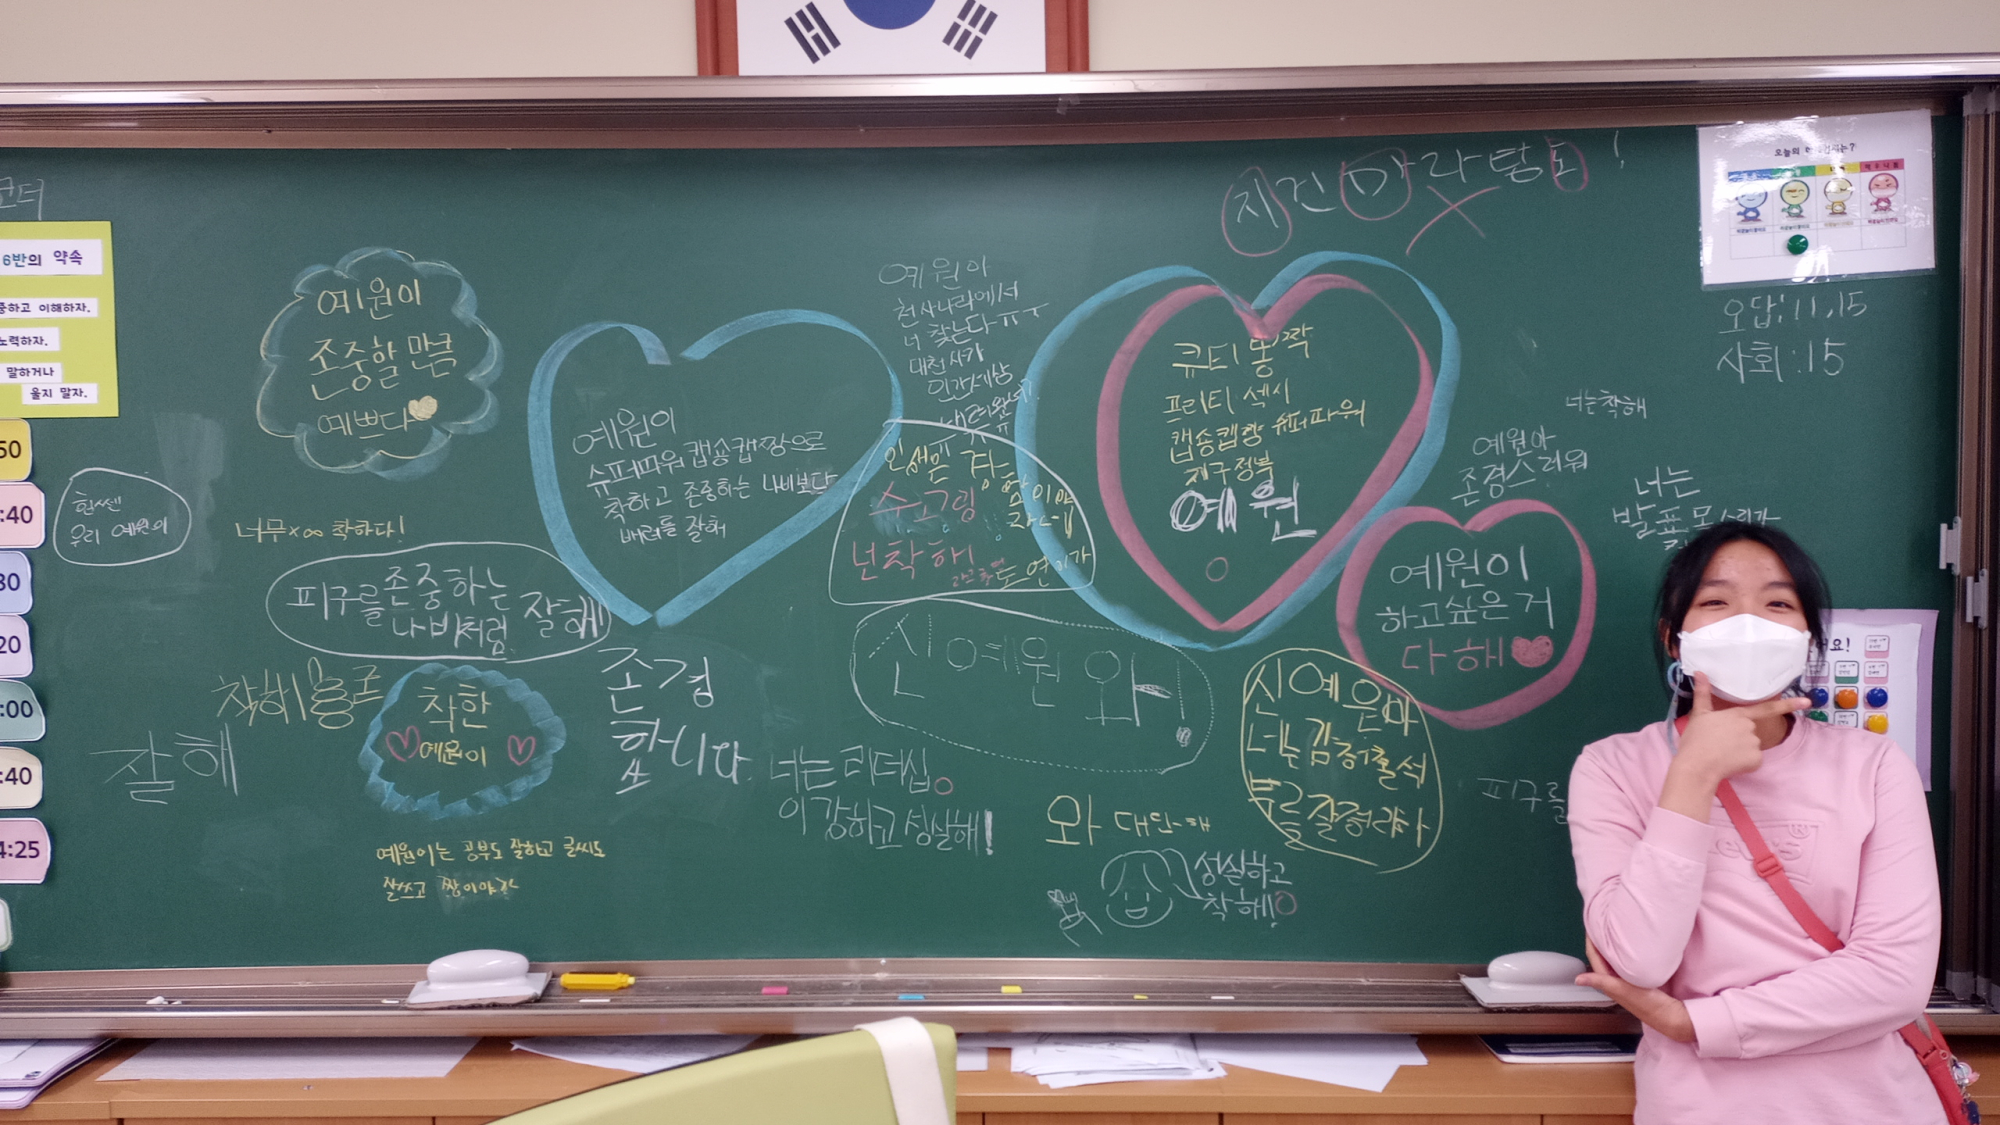 6반의 약속
하고 이해하자.
노력하자.
말하거나
울지 말자.
50
:40
30
20
:00
:40
4:25
힘쎈
우리 예원이
예원이
존중할 만큼
예쁘다
너무×∞ 착하다!
피구를 존중하는
나비처럼 잘해
착해용
잘해
착한
예원이
예원이는 공부도 잘하고 글씨도
잘쓰고 짱이야
예원이
슈퍼파워 캡숑캡짱으로
착하고 존중하는 나비보다
배려를 잘해
존경
합니다
예원이
천사나라에서
너 찾는다 ㅠㅜ
대천사가
인간세상
수고링
넌착해!
신예원 와!
너는 리더십
이 강하고 성실해!
와 대단해
성실하고
착해!
지건 마라탕 도!
큐티 뽕짝
프리티 섹시
캡숑캡짱 슈퍼파워
지구정복
예원
신예원아
너는 감정출석
부를 잘정리
예원이
하고싶은 거
다해
예원아
존경스러워
너는착해
너는
발표
피구를
오답:11,15
사회:15
오늘의